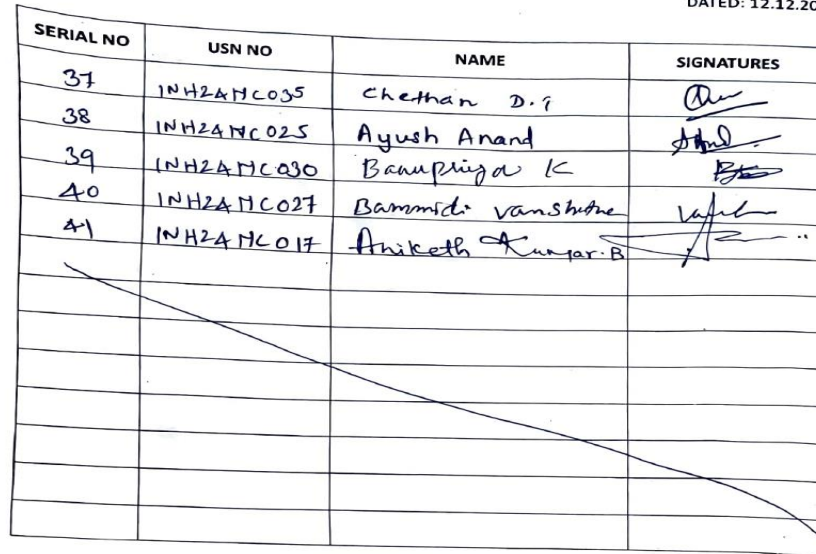 DATED: 12.12.20
SERIAL NO USN NO NAME SIGNATURES
37 1NH24MC035 Chethan D.
38 1NH24MC025 Ayush Anand
39 1NH24MC030 Banupriya K
40 1NH24MC027 Bammidi
41 1NH24MC017 Aniketh Kumar.B